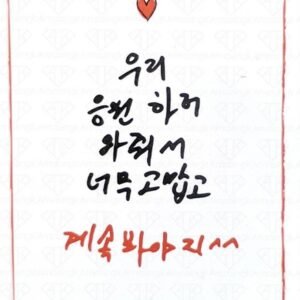 우리
응원 하러
와줘서
너무 고맙고
계속 봐야지^^